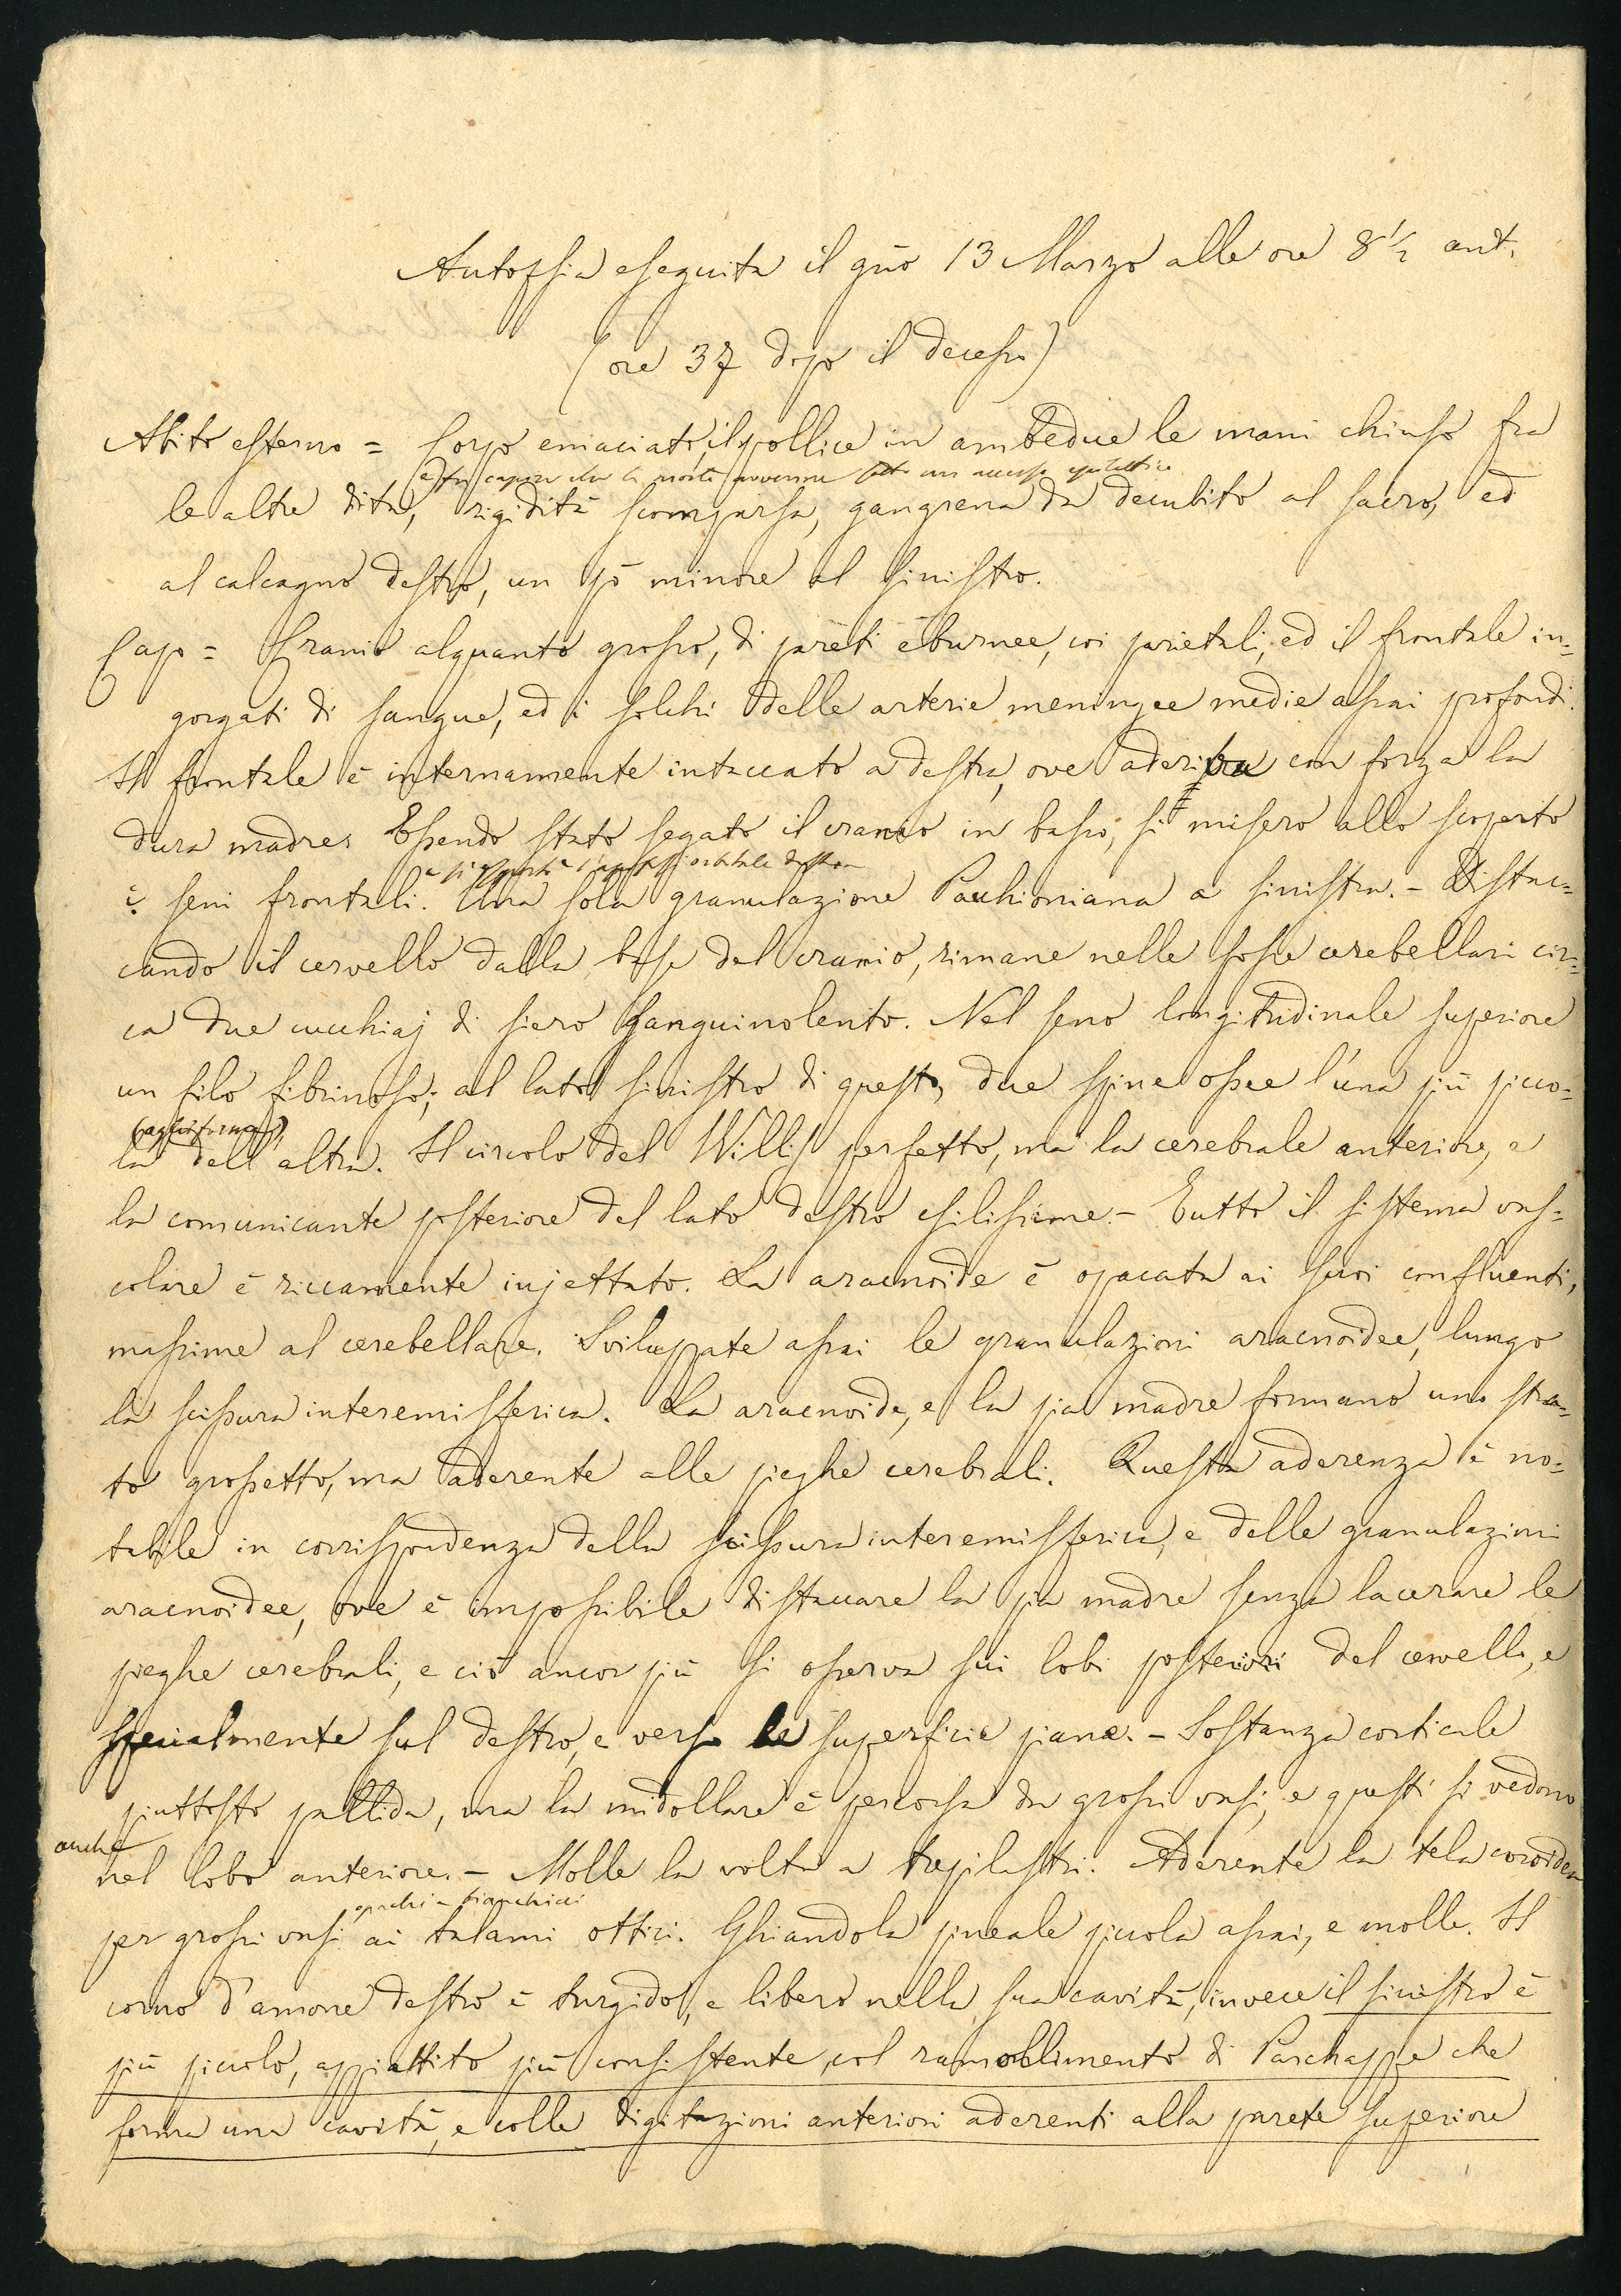 Autopsia eseguita il gño 13 Marzo alle ore 8 1/2 ant.
(ore 37 dopo il decesso)
Abito esterno = Corpo emaciato, il pollice in ambedue le mani chiuso fra
e fa capire che la morte avvenne sotto un accesso epilettico
le altre dita, rigidità scomparsa, gangrena da decubito al sacro, ed
al calcagno destro, un pò minore al sinistro.
Capo = Cranio alquanto grosso, di pareti eburnee, coi parietali, ed il frontale in=
gorgati di sangue, ed i solchi delle arterie meningee medie assai profondi.
Il frontale è internamente intaccato a destra, ove aderiva con forza la
dura madre. Essendo stato segato il cranio in basso, si misero allo scoperto
e si esportò l'apofisi orbitale destra
i seni frontali. Una sola granulazione Pacchioniana a sinistra. - Distac=
cando il cervello dalla base del cranio, rimane nelle fosse cerebellari cir=
ca due cucchiaj di siero sanguinolento. Nel seno longitudinale superiore
un filo fibrinoso; al lato sinistro di questo, due spine ossee l'una più picco=
(aghiformi),
la dell'altra. Il circolo del Willis perfetto, ma la cerebrale anteriore, e
la comunicante posteriore del lato destro esilissime. - Tutto il sistema vas=
colare è riccamente injettato. La aracnoide è opacata ai suoi confluenti,
massime al cerebellare. Sviluppate assai le granulazioni aracnoidee, lungo
la scissura interemisferica. La aracnoide, e la pia madre formano uno stra=
to grossetto, ma aderente alle pieghe cerebrali. Questa aderenza è no=
tabile in corrispondenza della scissura interemisferica, e delle granulazioni
aracnoidee, ove è impossibile distaccare la pia madre senza lacerare le
pieghe cerebrali, e ciò ancor più si osserva sui lobi posteriori del cervello, e
specialmente sul destro, e verso le superficie piane. - Sostanza corticale
piuttosto pallida, ma la midollare è percorsa da grossi vasi, e questi si vedono
anche
nel lobo anteriore. - Molle la volta a trepilastri. Aderente la tela coroidea
opachi e bianchicci
per grossi vasi ai talami ottici. Ghiandola pineale piccola assai, e molle. Il
corno d'amone destro è turgido, e libero nella sua cavità, invece il sinistro è
più piccolo, appiattito più consistente, col ramollimento di Parchappe che
forma una cavità, e colle digitazioni anteriori aderenti alla parete superiore